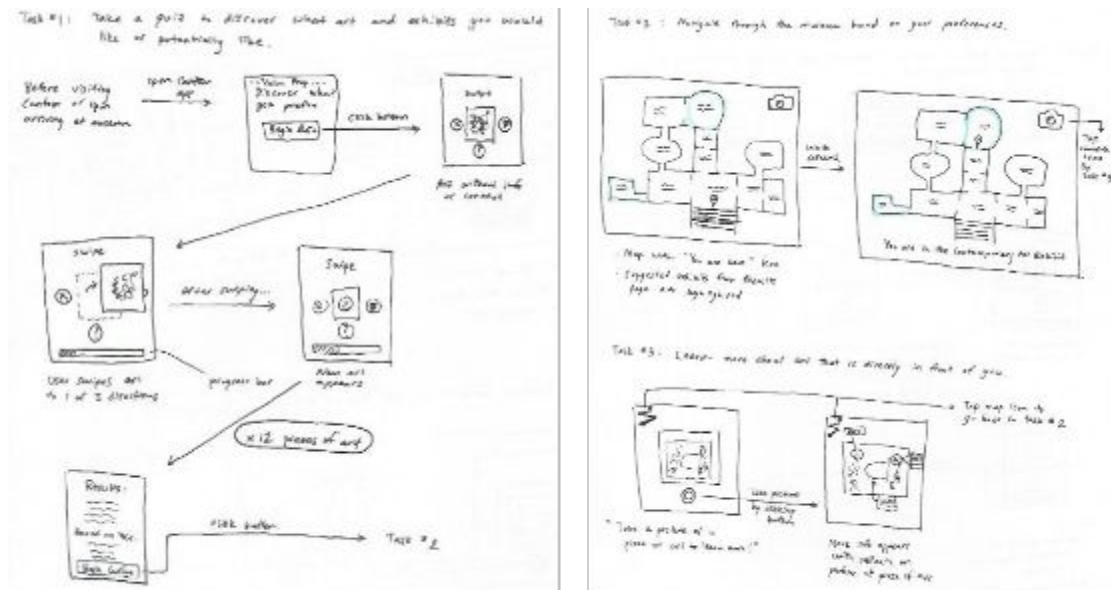 Task #1: Take a quiz to discover what art and exhibits you would
like or potentially like.
Before visiting
Cantor or upon
arriving at museum
open Cantor
app
Discover what
you prefer
Begin Quiz
click button
swipe
Art without info
or context
swipe
After swiping...
Swipe
User swipes art
to 1 of 3 directions
progress bar
New art
appears
x12 pieces of art
Results:
Based on
click button
Task #2
Task #2: Navigate through the museum based on your preferences.
walk
around
- Map with "You are here" icon
- Suggested exhibits from
page are highlighted
You are in the Contemporary Art Exhibit
Task #3: Learn more about art that is directly in front of you.
Tap map icon to
go back to Task #2
"Take a picture of a
piece of art to learn more!"
take picture
by clicking
button
More info appears